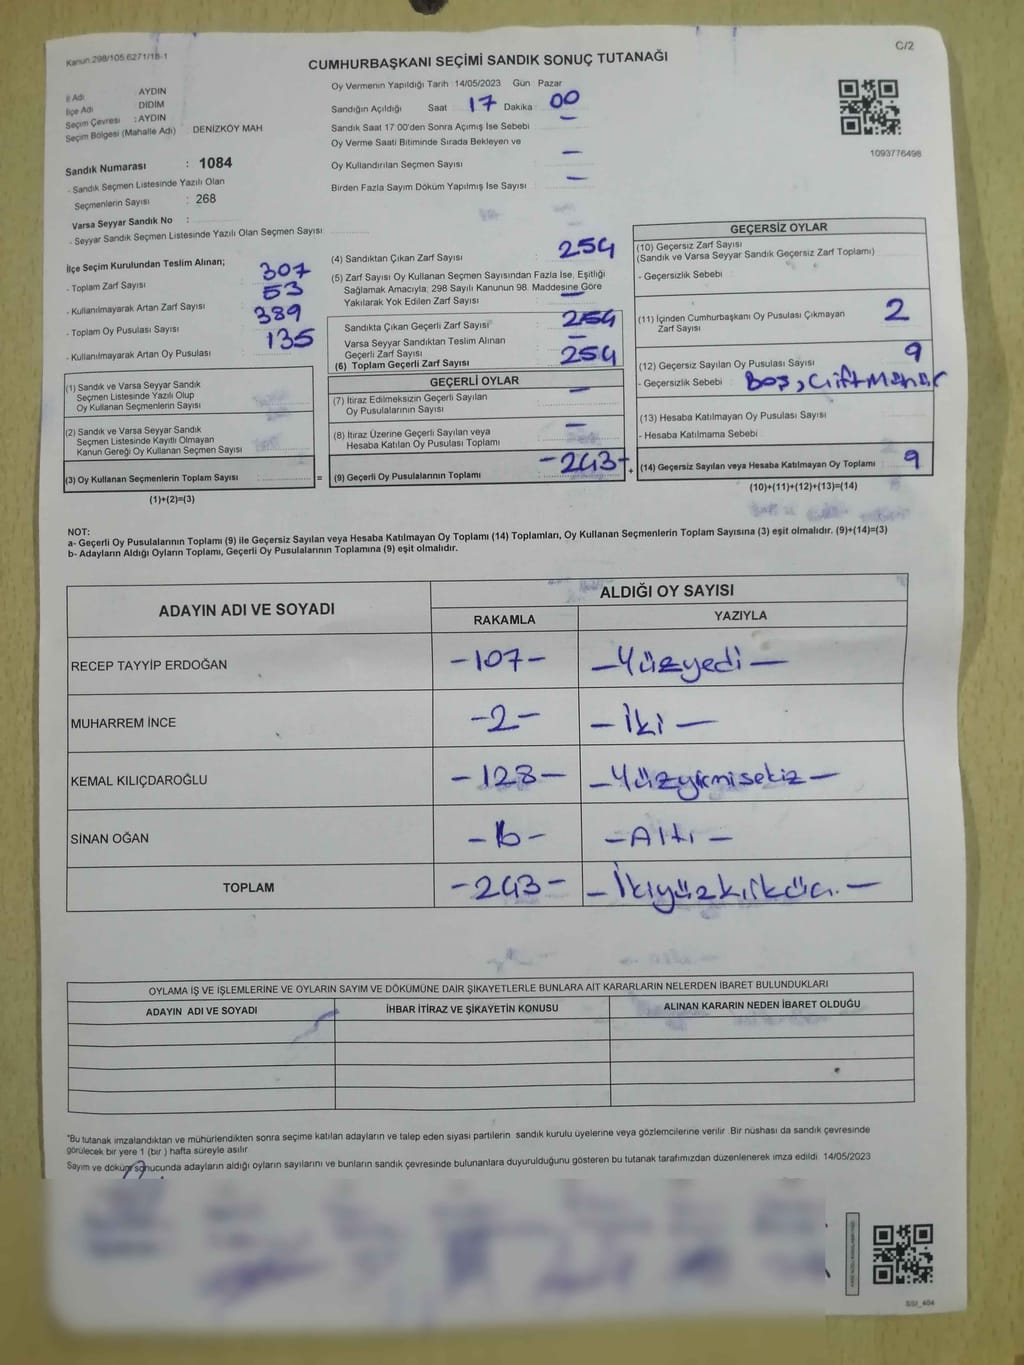 Kanun 298/105 6271/18-1
C/2
CUMHURBAŞKANI SEÇİMİ SANDIK SONUÇ TUTANAĞI
İl Adı AYDIN
İlçe Adı DİDİM
Seçim Çevresi : AYDIN
Seçim Bölgesi (Mahalle Adı) DENİZKÖY MAH
Sandık Numarası : 1084
- Sandık Seçmen Listesinde Yazılı Olan
Seçmenlerin Sayısı : 268
Varsa Seyyar Sandık No :
- Seyyar Sandık Seçmen Listesinde Yazılı Olan Seçmen Sayısı
Oy Vermenin Yapıldığı Tarih 14/05/2023 Gün Pazar
Sandığın Açıldığı Saat 17 Dakika 00
Sandık Saat 17 00'den Sonra Açımış İse Sebebi —
Oy Verme Saati Bitiminde Sırada Bekleyen ve
Oy Kullandırılan Seçmen Sayısı —
Birden Fazla Sayım Döküm Yapılmış İse Sayısı —
1093776498
İlçe Seçim Kurulundan Teslim Alınan;
- Toplam Zarf Sayısı 307
- Kullanılmayarak Artan Zarf Sayısı 53
- Toplam Oy Pusulası Sayısı 389
- Kullanılmayarak Artan Oy Pusulası 135
(1) Sandık ve Varsa Seyyar Sandık
Seçmen Listesinde Yazılı Olup
Oy Kullanan Seçmenlerin Sayısı
(2) Sandık ve Varsa Seyyar Sandık
Seçmen Listesinde Kayıtlı Olmayan
Kanun Gereği Oy Kullanan Seçmen Sayısı
(3) Oy Kullanan Seçmenlerin Toplam Sayısı =
(1)+(2)=(3)
(4) Sandıktan Çıkan Zarf Sayısı 254
(5) Zarf Sayısı Oy Kullanan Seçmen Sayısından Fazla İse, Eşitliği
Sağlamak Amacıyla, 298 Sayılı Kanunun 98. Maddesine Göre
Yakılarak Yok Edilen Zarf Sayısı —
Sandıkta Çıkan Geçerli Zarf Sayısı 254
Varsa Seyyar Sandıktan Teslim Alınan
Geçerli Zarf Sayısı
(6) Toplam Geçerli Zarf Sayısı 254
GEÇERLİ OYLAR
(7) İtiraz Edilmeksizin Geçerli Sayılan
Oy Pusulalarının Sayısı —
(8) İtiraz Üzerine Geçerli Sayılan veya
Hesaba Katılan Oy Pusulası Toplamı —
(9) Geçerli Oy Pusulalarının Toplamı -243- +
GEÇERSİZ OYLAR
(10) Geçersiz Zarf Sayısı
(Sandık ve Varsa Seyyar Sandık Geçersiz Zarf Toplamı)
- Geçersizlik Sebebi :
(11) İçinden Cumhurbaşkanı Oy Pusulası Çıkmayan
Zarf Sayısı 2
(12) Geçersiz Sayılan Oy Pusulası Sayısı 9
- Geçersizlik Sebebi : Boş, Çift Mühür
(13) Hesaba Katılmayan Oy Pusulası Sayısı
- Hesaba Katılmama Sebebi
(14) Geçersiz Sayılan veya Hesaba Katılmayan Oy Toplamı 9
(10)+(11)+(12)+(13)=(14)
NOT:
a- Geçerli Oy Pusulalarının Toplamı (9) ile Geçersiz Sayılan veya Hesaba Katılmayan Oy Toplamı (14) Toplamları, Oy Kullanan Seçmenlerin Toplam Sayısına (3) eşit olmalıdır. (9)+(14)=(3)
b- Adayların Aldığı Oyların Toplamı, Geçerli Oy Pusulalarının Toplamına (9) eşit olmalıdır.
ADAYIN ADI VE SOYADI ALDIĞI OY SAYISI
RAKAMLA YAZIYLA
RECEP TAYYİP ERDOĞAN -107- -Yüzyedi-
MUHARREM İNCE -2- -İki-
KEMAL KILIÇDAROĞLU -128- -Yüzyirmisekiz-
SİNAN OĞAN -6- -Altı-
TOPLAM -243- -İkiyüzkırküç.-
OYLAMA İŞ VE İŞLEMLERİNE VE OYLARIN SAYIM VE DÖKÜMÜNE DAİR ŞİKAYETLERLE BUNLARA AİT KARARLARIN NELERDEN İBARET BULUNDUKLARI
ADAYIN ADI VE SOYADI İHBAR İTİRAZ VE ŞİKAYETİN KONUSU ALINAN KARARIN NEDEN İBARET OLDUĞU
*Bu tutanak imzalandıktan ve mühürlendikten sonra seçime katılan adayların ve talep eden siyasi partilerin sandık kurulu üyelerine veya gözlemcilerine verilir. Bir nüshası da sandık çevresinde
görülecek bir yere 1 (bir ) hafta süreyle asılır
Sayım ve döküm sonucunda adayların aldığı oyların sayılarını ve bunların sandık çevresinde bulunanlara duyurulduğunu gösteren bu tutanak tarafımızdan düzenlenerek imza edildi. 14/05/2023